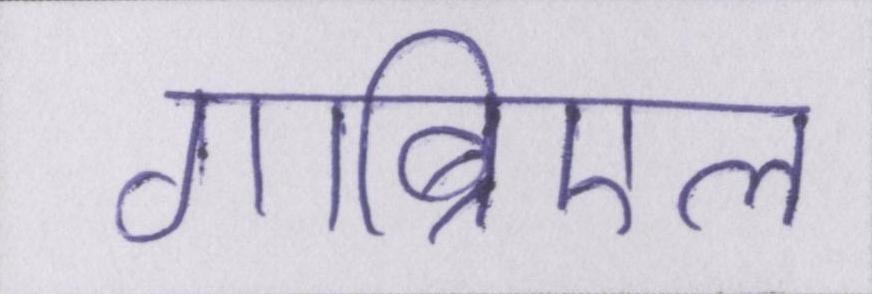 गाब्रिएल